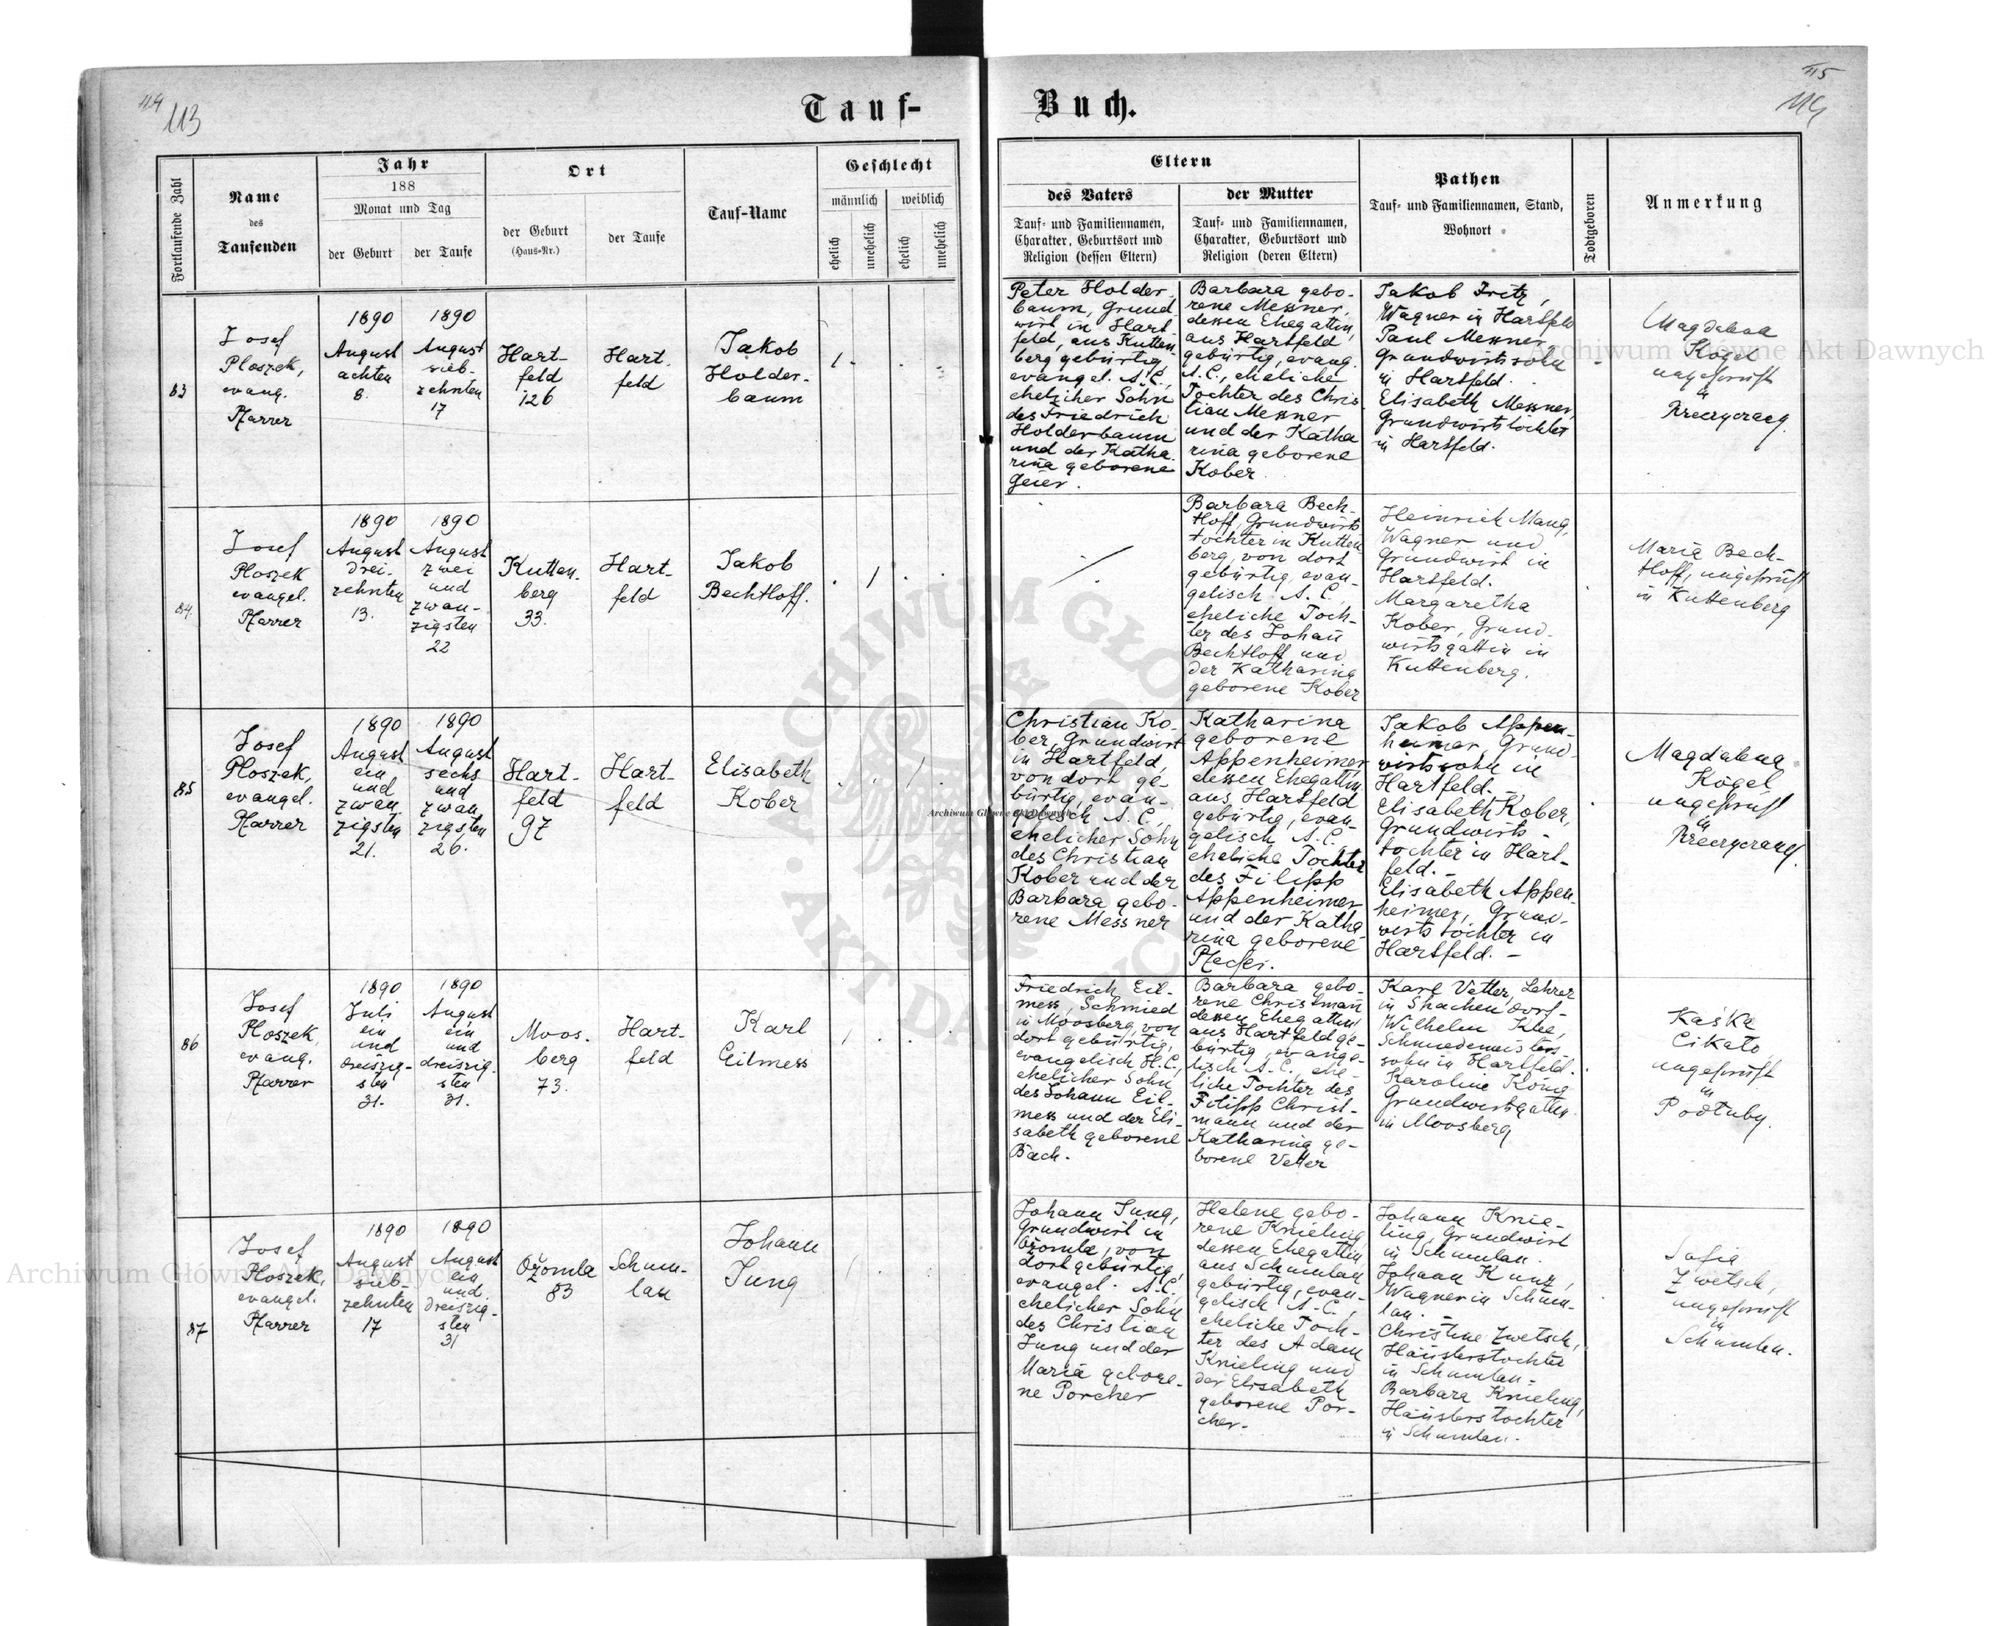 114
113
Tauf-
Buch.
115
114
Fortlaufende Zahl
Name
des
Taufenden
Jahr
188
Monat und Tag
der Geburt
der Taufe
Ort
der Geburt
(Haus-Nr.)
der Taufe
Tauf-Name
Geschlecht
männlich
weiblich
ehelich
unehelich
ehelich
unehelich
Eltern
des Vaters
Tauf- und Familiennamen,
Charakter, Geburtsort und
Religion (dessen Eltern)
der Mutter
Tauf- und Familiennamen,
Charakter, Geburtsort und
Religion (deren Eltern)
Pathen
Tauf- und Familiennamen, Stand,
Wohnort
Todtgeboren
Anmerkung
83
Josef
Ploszek,
evang.
Pfarrer
1890
August
achten
8.
1890
August
sieb-
zehnten
17
Hart-
feld
126
Hart-
feld
Jakob
Holder-
baum
1
Peter Holder-
baum, Grund
wirt in Hart
feld, aus Kutten
berg gebürtig,
evangel. A.C.,
ehelicher Sohn
des Friedrich
Holderbaum
und der Katha
rina geborene
Geier.
Barbara gebo-
rene Messner,
dessen Ehegattin,
aus Hartfeld
gebürtig, evang.
A.C., eheliche
Tochter des Chris
tian Messner
und der Katha
rina geborene
Kober
Jakob Fritz,
Wagner in Hartfeld
Paul Messner
Grundwirtssohn
in Hartfeld.
Elisabeth Messner,
Grundwirtstochter
in Hartfeld.
Magdalena
Kögel
ungeprüft
in
84.
Josef
Ploszek
evangel.
Pfarrer
1890
August
drei-
zehnten
13.
1890
August
zwei
und
zwan-
zigsten
22
Kutten-
berg
33.
Hart-
feld
Jakob
Bechtloff.
1
Barbara Bech-
tloff, Grundwirts
tochter in Kutten
berg, von dort
gebürtig, evan-
gelisch A.C.,
eheliche Toch-
ter des Johan
Bechtloff und
der Katharina
geborene Kober
Heinrich Mang,
Wagner und
Grundwirt in
Hartfeld.
Margaretha
Kober, Grund-
wirtsgattin in
Kuttenberg.
Maria Bech-
tloff, ungeprüft
in Kuttenberg
85
Josef
Ploszek,
evangel.
Pfarrer
1890
August
ein
und
zwan
zigsten
21.
1890
August
sechs
und
zwan
zigsten
26.
Hart-
feld
97
Hart-
feld
Elisabeth
Kober
1
Christian Ko-
ber, Grundwirt
in Hartfeld,
von dort ge-
bürtig, evan-
gelisch A.C.,
ehelicher Sohn
des Christian
Kober und der
Barbara gebo-
rene Messner
Katharina
geborene
Appenheimer
dessen Ehegattin
aus Hartfeld
gebürtig, evan-
gelisch A.C.
eheliche Tochter
des Filipp
Appenheimer
und der Katha
rina geborene
Jakob Appen-
heimer, Grund-
wirtssohn in
Hartfeld. -
Elisabeth Kober,
Grundwirts-
tochter in Hart-
feld. -
Elisabeth Appen-
heimer, Grund-
wirtstochter in
Hartfeld. -
Magdalena
Kögel
ungeprüft
in
86
Josef
Ploszek,
evang.
Pfarrer
1890
Juli
ein
und
dreiszig-
sten
31.
1890
August
ein
und
dreiszig-
sten
31.
Moos-
berg
73.
Hart-
feld
Karl
Eilmess
1
Friedrich Eil-
mess, Schmied
in Moosberg, von
dort gebürtig,
evangelisch H.C.,
ehelicher Sohn
des Johann Eil-
mess und der Eli-
sabeth geborene
Bach.
Barbara gebo-
rene Christman
dessen Ehegattin
aus Hartfeld ge-
bürtig, evange-
lisch A.C. ehe-
liche Tochter des
Filipp Christ-
mann und der
Katharina ge-
borene Vetter
Karl Vetter, Lehrer
in
Wilhelm Klee,
Schmiedemeisters-
sohn in Hartfeld.
Karoline König
Grundwirtsgattin
in Moosberg
Kaśka
Cikato
ungeprüft
in
Podłuby.
87
Josef
Ploszek,
evangel.
Pfarrer
1890
August
sieb-
zehnten
17
1890
August
ein
und
dreiszig-
sten
31
Ożomla
83
Schum-
lau
Johann
Jung
1
Johann Jung,
Grundwirt in
Ożomla, von
dort gebürtig,
evangel. A.C.,
ehelicher Sohn
des Christian
Jung und der
Maria gebore-
ne Porcher
Helene gebo-
rene Knieling
dessen Ehegattin
aus Schumlau
gebürtig, evan-
gelisch A.C.,
eheliche Toch-
ter des Adam
Knieling und
der Elisabeth
geborene Por-
cher.
Johann Knie-
ling, Grundwirt
in Schumlau.
Johann Kunz,
Wagner in Schum-
lau. -
Christine Zwetsch,
Häuslerstochter
in Schumlau -
Barbara Knieling,
Häuslerstochter
in Schumlau.
Sofia
Zwetsch,
ungeprüft
in
Schumlau.
Archiwum Główne Akt Dawnych
Archiwum Główne Akt Dawnych
Archiwum Główne Akt Dawnych